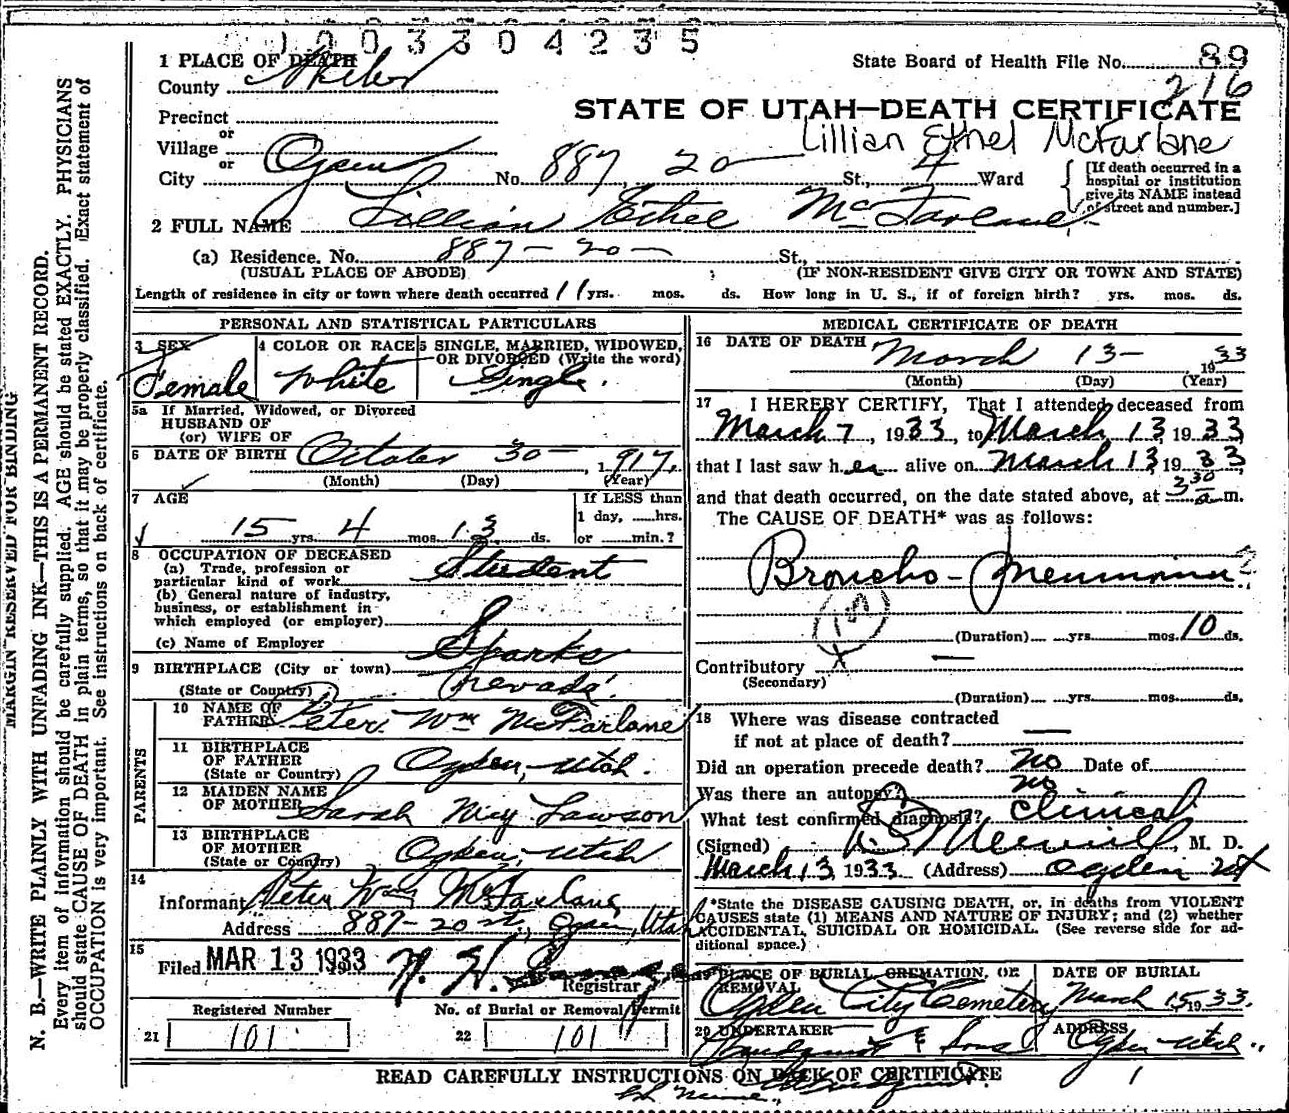 10033304235
1 PLACE OF DEATH
State Board of Health File No. 89
County Weber
216
STATE OF UTAH—DEATH CERTIFICATE
Precinct
or
Lillian Ethel McFarlane
Village
or
City Ogden No. 887, 20 St., 4 Ward
[If death occurred in a
hospital or institution
give its NAME instead
of street and number.]
2 FULL NAME Lillian Ethel McFarlane
(a) Residence. No. 887 - 20 - St.,
(USUAL PLACE OF ABODE) (IF NON-RESIDENT GIVE CITY OR TOWN AND STATE)
Length of residence in city or town where death occurred 11 yrs. mos. ds. How long in U. S., if of foreign birth? yrs. mos. ds.
PERSONAL AND STATISTICAL PARTICULARS
3 SEX
Female
4 COLOR OR RACE
White
5 SINGLE, MARRIED, WIDOWED,
OR DIVORCED (Write the word)
Single.
5a If Married, Widowed, or Divorced
HUSBAND OF
(or) WIFE OF
6 DATE OF BIRTH October 30 - , 1917.
(Month) (Day) (Year)
7 AGE
15 yrs. 4 mos. 13 ds.
If LESS than
1 day, hrs.
or min.?
8 OCCUPATION OF DECEASED
(a) Trade, profession or
particular kind of work Student
(b) General nature of industry,
business, or establishment in
which employed (or employer)
(c) Name of Employer
9 BIRTHPLACE (City or town) Sparks
(State or Country) Nevada
PARENTS
10 NAME OF
FATHER Peter Wm McFarlane
11 BIRTHPLACE
OF FATHER
(State or Country) Ogden, Utah.
12 MAIDEN NAME
OF MOTHER Sarah May Lawson
13 BIRTHPLACE
OF MOTHER
(State or Country) Ogden, Utah
14
Informant Peter Wm McFarlane
Address 887-20 st., Ogden, Utah
15
Filed MAR 13 1933
Registrar
Registered Number
21 101
No. of Burial or Removal Permit
22 101
MEDICAL CERTIFICATE OF DEATH
16 DATE OF DEATH March 13 - 1933
(Month) (Day) (Year)
17 I HEREBY CERTIFY, That I attended deceased from
March 7, 1933, to March 13 1933
that I last saw her alive on March 13, 1933,
and that death occurred, on the date stated above, at 3 30 a m.
The CAUSE OF DEATH* was as follows:
Broncho-Pneumonia
(Duration) yrs. mos. 10 ds.
Contributory x —
(Secondary)
(Duration) yrs. mos. ds.
18 Where was disease contracted
if not at place of death? —
Did an operation precede death? No Date of
Was there an autopsy? no
What test confirmed diagnosis? Clinical
(Signed) Merrill, M. D.
March 13, 1933 (Address) Ogden Ut
*State the DISEASE CAUSING DEATH, or, in deaths from VIOLENT
CAUSES state (1) MEANS AND NATURE OF INJURY; and (2) whether
ACCIDENTAL, SUICIDAL OR HOMICIDAL. (See reverse side for ad-
ditional space.)
19 PLACE OF BURIAL, CREMATION, OR
REMOVAL
Ogden City Cemetery
DATE OF BURIAL
March 15, 1933.
20 UNDERTAKER
& Sons
ADDRESS
Ogden Utah
READ CAREFULLY INSTRUCTIONS ON BACK OF CERTIFICATE
MARGIN RESERVED FOR BINDING
N. B.—WRITE PLAINLY WITH UNFADING INK—THIS IS A PERMANENT RECORD.
Every item of information should be carefully supplied. AGE should be stated EXACTLY. PHYSICIANS
should state CAUSE OF DEATH in plain terms, so that it may be properly classified. Exact statement of
OCCUPATION is very important. See instructions on back of certificate.